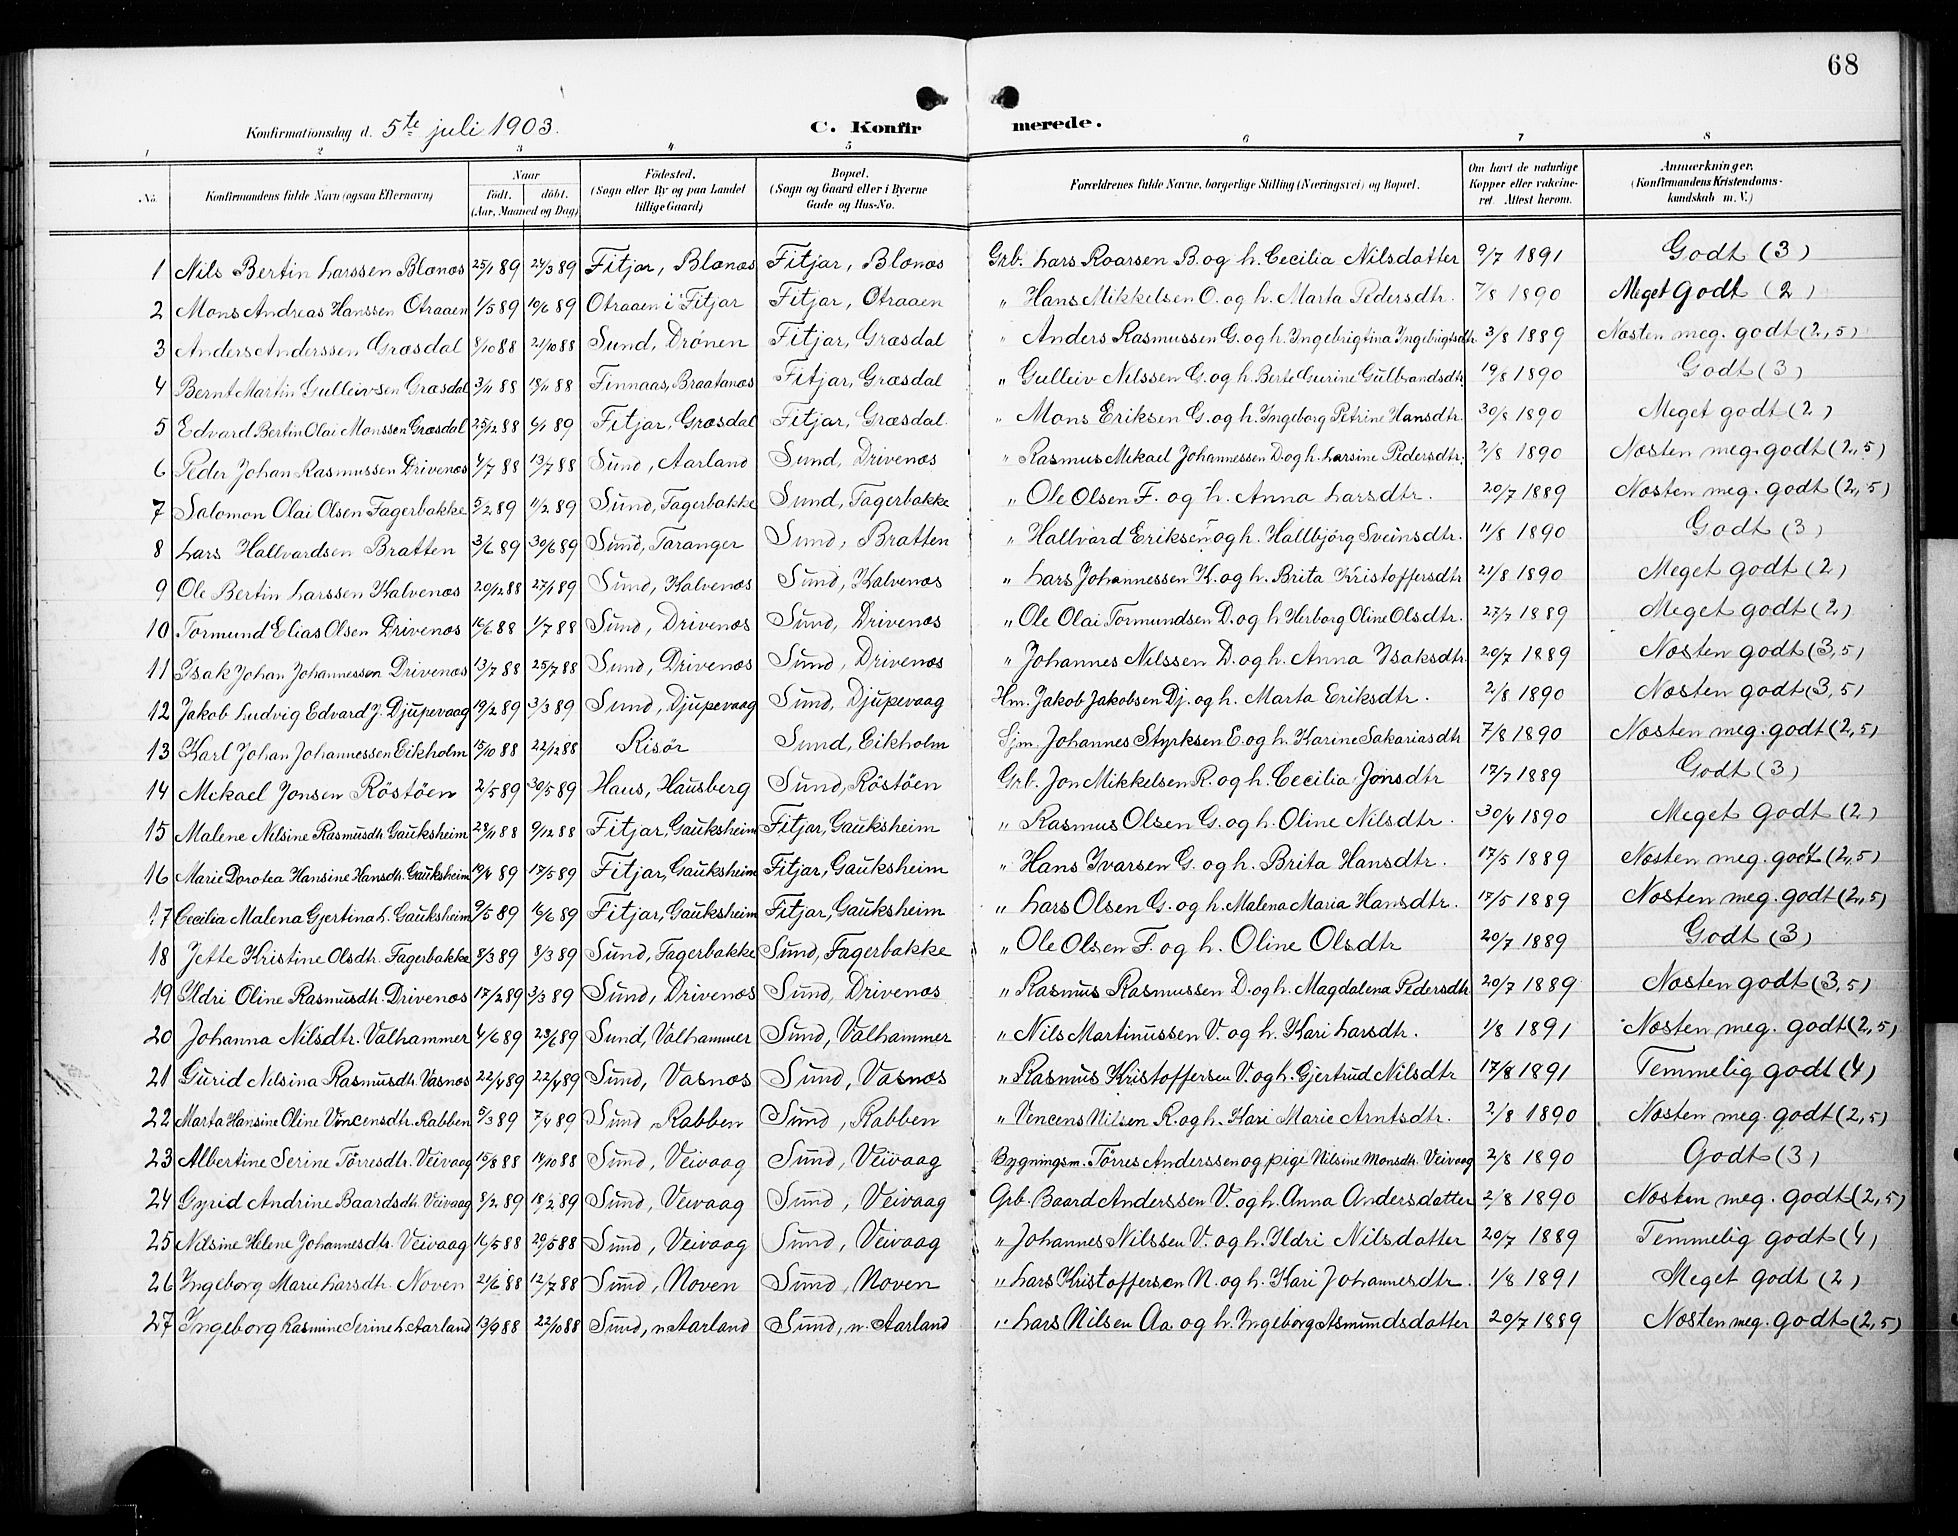 68
Konfirmationsdag d. 5te juli 1903. C. Konfir merede.
1 2 3 4 5 6 7 8
No. Konfirmandens fulde Navn (ogsaa Efternavn) Naar födt. döbt. (Aar, Maaned og Dag) Födested. (Sogn eller By og paa Landet tillige Gaard) Bopæl. (Sogn og Gaard eller i Byerne Gade og Hus-No. Forældrenes fulde Navne, borgerlige Stilling (Næringsvei) og Bopæl. Om havt de naturlige Kopper eller vakcineret. Attest herom. Anmærkninger. (Konfirmandens Kristendomskundskab m. V.)
1 Nils Bertin Larssen Blænæs 25/1 89 24/3 89 Fitjar, Blænæs Fitjar, Blænæs Grb. Lars Roarsen B. og h. Cecilia Nilsdatter 9/7 1891 Godt (3)
2 Mons Andreas Hanssen Otraaen 1/5 89 10/6 89 Otraaen i Fitjar Fitjar, Otraaen " Hans Mikkelsen O. og h. Marta Pedersdtr. 7/8 1890 Meget godt (2)
3 Anders Anderssen Græsdal 8/10 88 21/10 88 Sund, Drönen Fitjar, Græsdal " Anders Rasmussen G. og h. Ingebrigtina Ingebrigtsdtr 3/8 1889 Næsten meg. godt (2,5)
4 Bernt Martin Gulleivsen Græsdal 3/11 88 18/11 88 Finnaas, Braatanæs Fitjar, Græsdal " Gulleiv Nilssen G. og h. Berte Gurine Gulbrandsdtr. 19/8 1890 Godt (3)
5 Edvard Bertin Olai Monssen Græsdal 25/12 88 6/1 89 Fitjar, Græsdal Fitjar, Græsdal. " Mons Eriksen G. og h. Ingeborg Petrine Hansdtr. 30/8 1890 Meget godt (2)
6 Peder Johan Rasmussen Drivenæs 4/7 88 13/7 88 Sund, Aarland Sund, Drivenæs " Rasmus Mikael Johannessen D. og h. Larsine Pedersdtr. 2/8 1890 Næsten meg. godt (2,5)
7 Salomon Olai Olsen Fagerbakke 5/2 89 11/2 89 Sund, Fagerbakke Sund, Fagerbakke " Ole Olsen F. og h. Anna Larsdtr. 20/7 1889 Næsten meg. godt (2,5)
8 Lars Hallvardsen Bratten 3/6 89 30/6 89 Sund, Taranger Sund, Bratten " Hallvard Eriksen T og h. Hallbjörg Sveinsdtr. 11/8 1890 Godt (3)
9 Ole Bertin Larssen Kalvenæs 20/12 88 27/1 89 Sund, Kalvenæs Sund, Kalvenæs " Lars Johannessen K. og h. Brita Kristoffersdtr 21/8 1890 Meget godt (2)
10 Tormund Elias Olsen Drivenæs 16/6 88 1/7 88 Sund, Drivenæs Sund, Drivenæs " Ole Olai Tormundsen D. og h Herborg Oline Olsdtr. 27/7 1889 Meget godt (2)
11 Isak Johan Johannessen Drivenæs 13/7 88 25/7 88 Sund, Drivenæs Sund, Drivenæs " Johannes Nilssen D. og h. Anna Isaksdtr 20/7 1889 Næsten godt (3,5)
12 Jakob Ludvig Edvard J. Djupevaag 19/2 89 3/3 89 Sund, Djupevaag Sund, Djupevaag Hm. Jakob Jakobsen Dj. og h. Marta Eriksdtr. 2/8 1890 Næsten godt (3,5)
13 Karl Johan Johannessen Eikholm 15/10 88 22/12 88 Risör Sund, Eikholm Sjm. Johannes Styrksen E. og h. Karine Sakariasdtr 7/8 1890 Næsten meg. godt (2,5)
14 Mikael Jonsen Röstöen 2/5 89 30/5 89 Haus, Hausberg Sund, Röstöen Grb. Jon Mikkelsen R. og h. Cecilia Jonsdtr 17/7 1889 Godt (3)
15 Malene Nilsine Rasmusdtr. Gauksheim 23/11 88 9/12 88 Fitjar, Gauksheim Fitjar, Gauksheim " Rasmus Olsen G. og h. Oline Nilsdtr. 30/4 1890 Meget godt (2)
16 Marie Dorotea Hansine Hansdtr. Gauksheim 19/4 89 17/5 89 Fitjar, Gauksheim Fitjar, Gauksheim " Hans Ivarsen G. og h. Brita Hansdtr. 17/5 1889 Næsten meg. godt (2,5)
17 Cecilia Malena Gjertina L. Gauksheim 9/5 89 16/6 89 Fitjar, Gauksheim Fitjar, Gauksheim " Lars Olsen G. og h. Malena Maria Hansdtr. 17/5 1889 Næsten meg. godt (2,5)
18 Jette Kristine Olsdtr. Fagerbakke 8/3 89 8/3 89 Sund, Fagerbakke Sund, Fagerbakke " Ole Olsen F. og h. Oline Olsdtr 20/7 1889 Godt (3)
19 Ildri Oline Rasmusdtr. Drivenæs 17/2 89 3/3 89 Sund, Drivenæs Sund, Drivenæs " Rasmus Rasmussen D. og h. Magdalena Pedersdtr 20/7 1889 Næsten godt (3,5)
20 Johanna Nilsdtr. Valhammer 4/6 89 23/6 89 Sund, Valhammer Sund, Valhammer " Nils Martinussen V. og h. Kari Larsdtr. 1/8 1891 Næsten meg. godt (2,5)
21 Gurid Nilsina Rasmusdtr. Vasnæs 22/4 89 22/4 89 Sund, Vasnæs Sund, Vasnæs " Rasmus Kristoffersen V. og h. Gjertrud Nilsdtr 17/8 1891 Temmelig godt (4)
22 Marta Hansine Oline Vincensdtr. Rabben 5/3 89 7/4 89 Sund, Rabben Sund, Rabben " Vencens Nilsen R. og h. Kari Marie Arntsdtr. 2/8 1890 Næsten meg. godt (2,5)
23 Albertine Serine Törresdtr. Veivaag 15/8 88 14/10 88 Sund, Veivaag Sund, Veivaag Bygningsm. Törres Anderssen og pige Nilsine Monsdtr. Veivaag 2/8 1890 Godt (3)
24 Gyrid Andrine Baardsdtr. Veivaag 8/2 89 18/2 89 Sund, Veivaag Sund, Veivaag Grb. Baard Anderssen V. og h. Anna Andersdatter 2/8 1890 Næsten meg. godt (2,5)
25 Nilsine Helene Johannesdtr. Veivaag 16/5 88 29/5 88 Sund, Veivaag Sund, Veivaag " Johannes Nilssen V. og h. Ildri Nilsdatter 20/7 1889 Temmelig godt (4)
26 Ingeborg Marie Larsdtr. Noven 21/6 88 12/7 88 Sund, Noven Sund, Noven " Lars Kristoffersen N. og h. Kari Johannesdtr. 1/8 1891 Meget godt (2)
27 Ingeborg Rasmine Serine L. Aarland 13/9 88 22/10 88 Sund, n. Aarland Sund, n. Aarland " Lars Nilsen Aa og h. Ingeborg Asmundsdatter 20/7 1889 Næsten meg. godt (2,5)